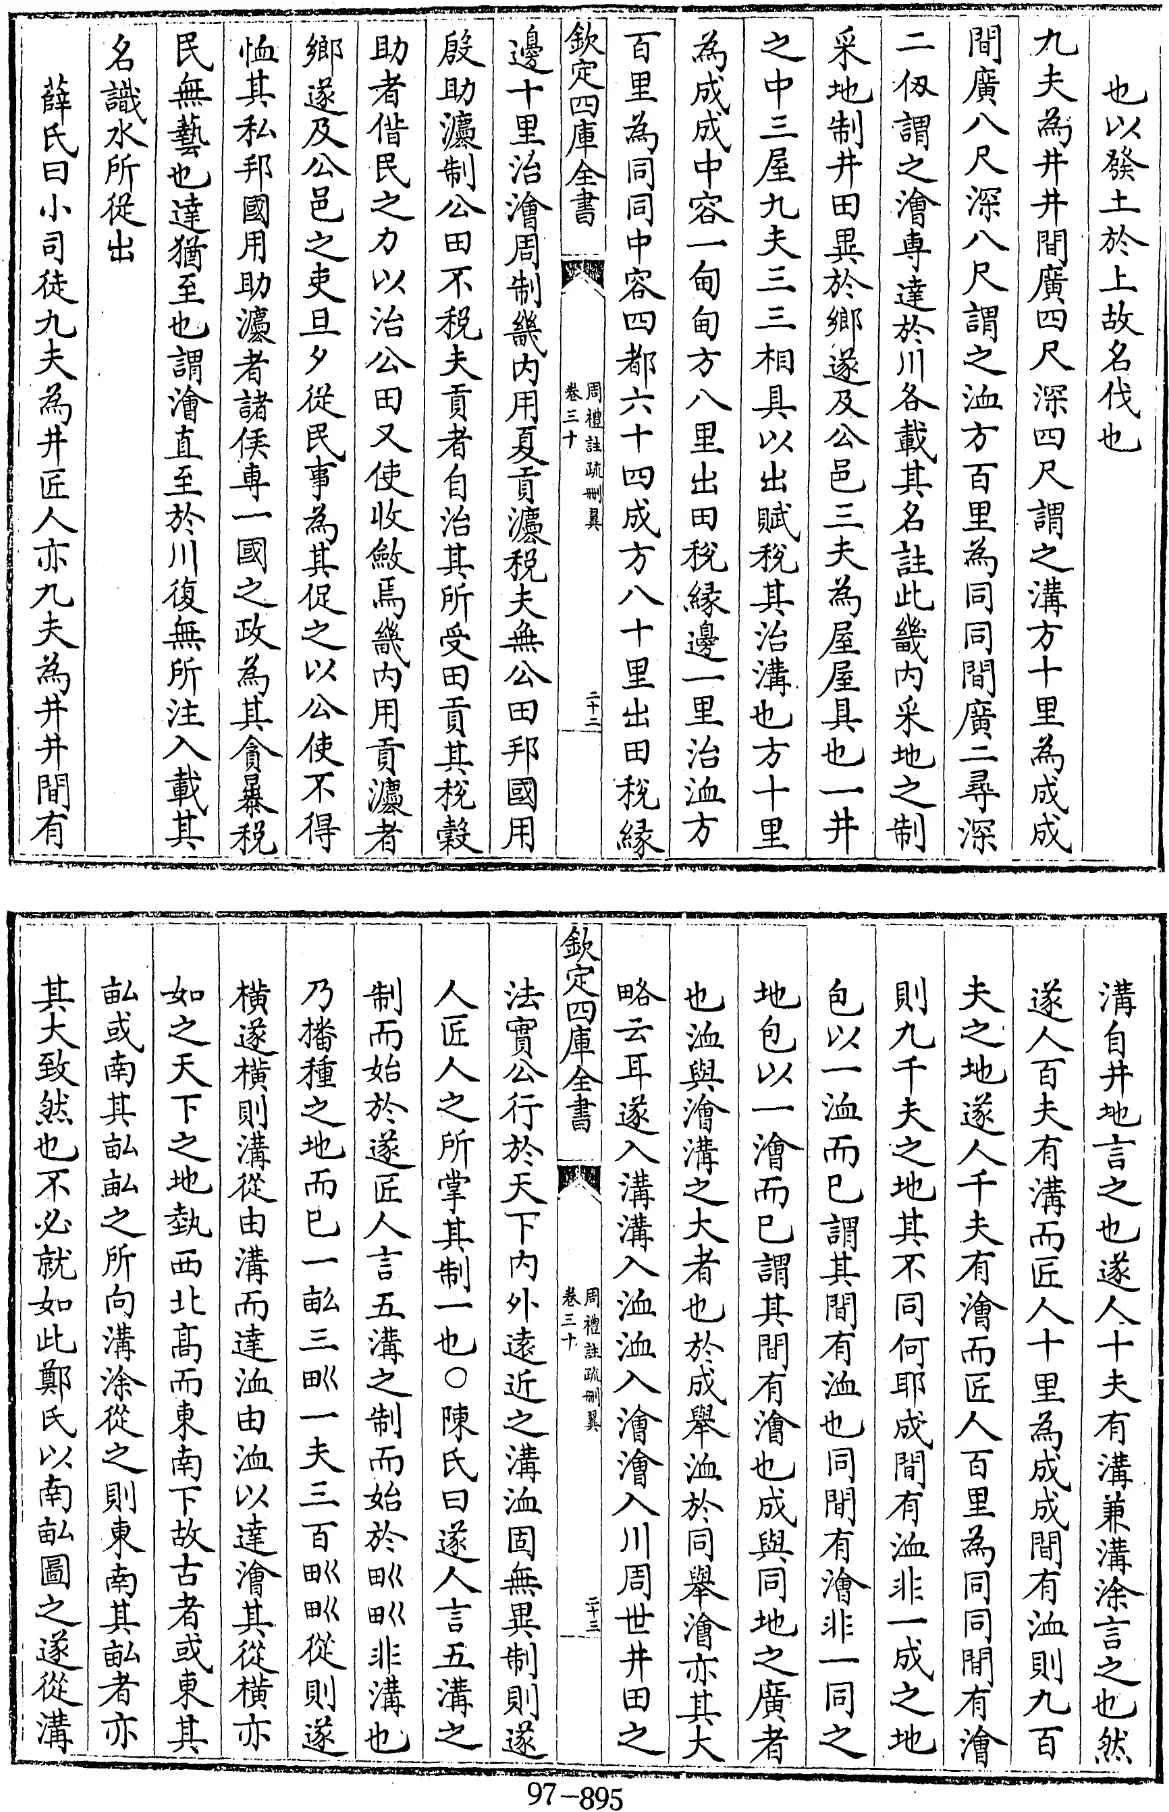 也以發土於上故名伐也
九夫為井井間廣四尺深四尺謂之溝方十里為成成
間廣八尺深八尺謂之洫方百里為同同間廣二尋深
二仭謂之澮専達於川各載其名註此畿内采地之制
采地制井田異於鄉遂及公邑三夫為屋屋具也一井
之中三屋九夫三三相具以出賦稅其治溝也方十里
為成成中容一甸甸方八里出田稅緣邊一里治洫方
百里為同同中容四都六十四成方八十里出田稅緣
欽定四庫全書
周禮註疏刪翼
卷三十
二十二
邊十里治澮周制畿内用夏貢灋稅夫無公田邦國用
殷助灋制公田不稅夫貢者自治其所受田貢其稅穀
助者借民之力以治公田又使收斂焉畿内用貢灋者
鄉遂及公邑之吏旦夕從民事為其促之以公使不得
恤其私邦國用助灋者諸侯専一國之政為其貪暴稅
民無藝也達猶至也謂澮直至於川復無所注入載其
名識水所從出
薛氏曰小司徒九夫為井匠人亦九夫為井井間有
溝自井地言之也遂人十夫有溝兼溝涂言之也然
遂人百夫有溝而匠人十里為成成間有洫則九百
夫之地遂人千夫有澮而匠人百里為同同間有澮
則九千夫之地其不同何耶成間有洫非一成之地
包以一洫而已謂其間有洫也同間有澮非一同之
地包以一澮而已謂其間有澮也成與同地之廣者
也洫與澮溝之大者也於成舉洫於同舉澮亦其大
略云耳遂入溝溝入洫洫入澮澮入川周世井田之
欽定四庫全書
周禮註疏刪翼
卷三十
二十三
法實公行於天下内外遠近之溝洫固無異制則遂
人匠人之所掌其制一也○陳氏曰遂人言五溝之
制而始於遂匠人言五溝之制而始於𤰕𤰕非溝也
乃播種之地而已一畝三𤰕一夫三百𤰕𤰕從則遂
橫遂橫則溝從由溝而達洫由洫以達澮其從橫亦
如之天下之地埶西北髙而東南下故古者或東其
畝或南其畝畝之所向溝涂從之則東南其畝者亦
其大致然也不必就如此鄭氏以南畝圖之遂從溝
97-895